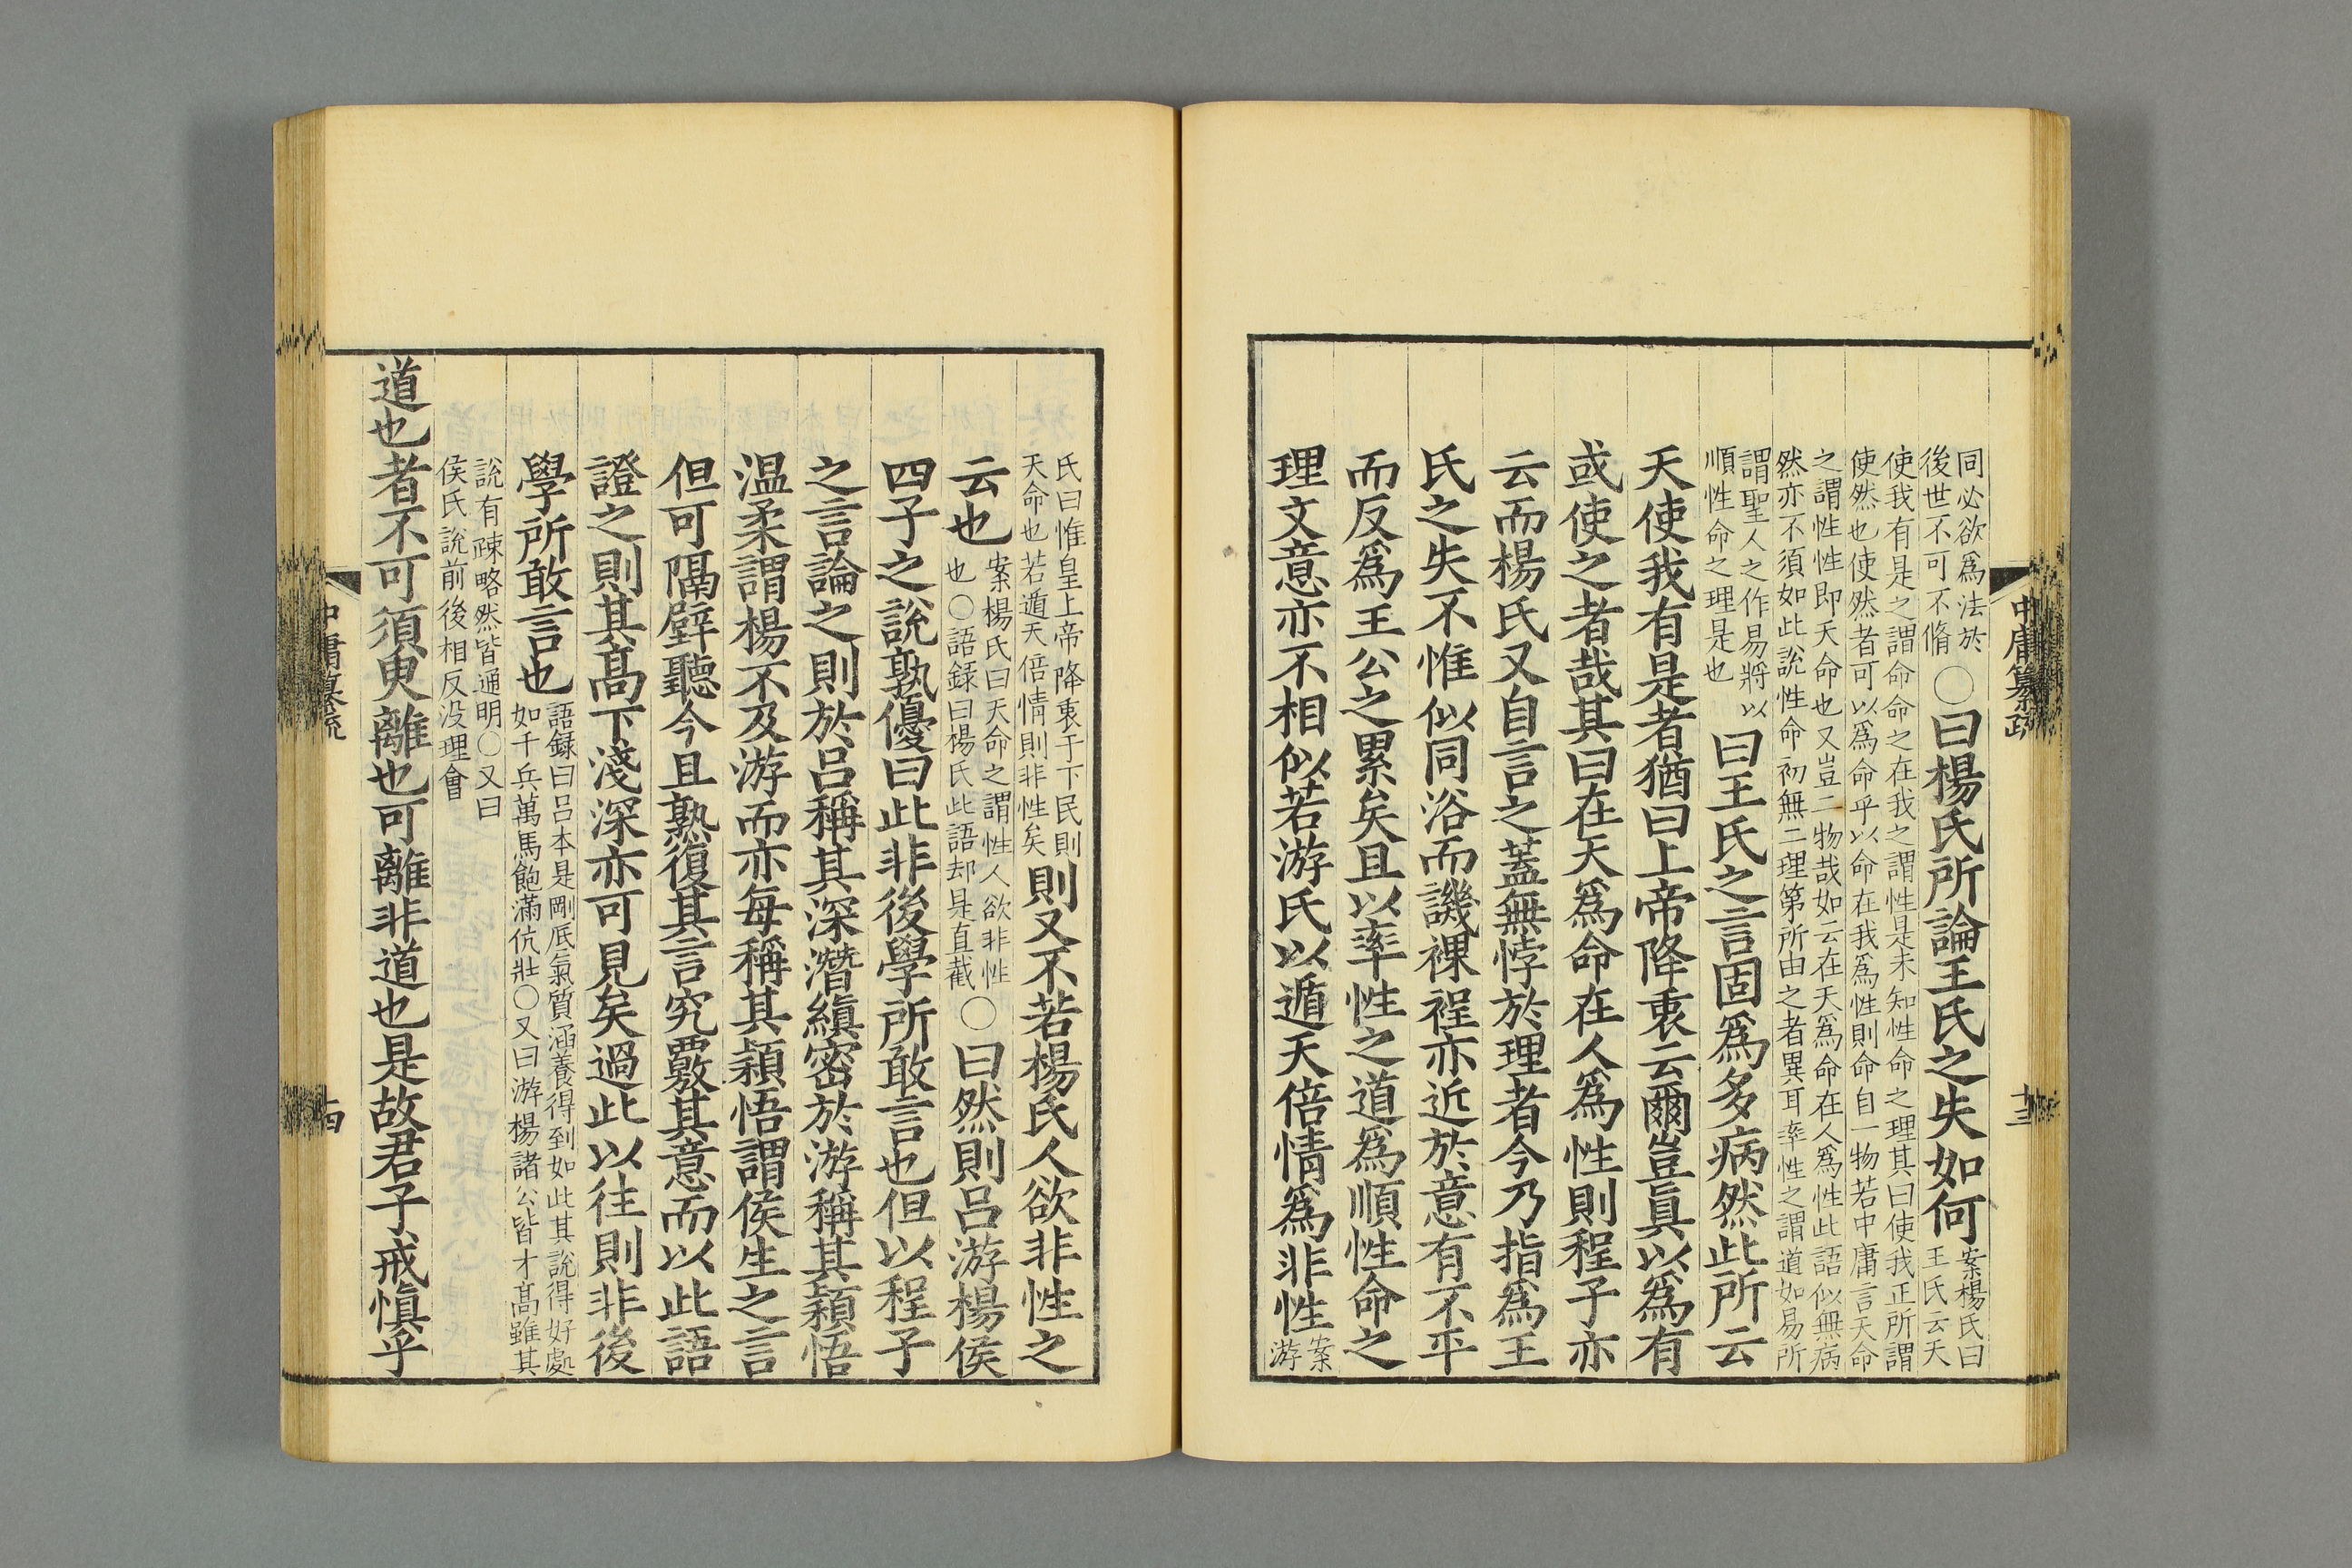 同必欲爲法於
後世不可不脩
〇曰楊氏所論王氏之失如何
案楊氏曰
王氏云天
使我有是之謂命命之在我之謂性是未知性命之理其曰使我正所謂
使然也使然者可以爲命乎以命在我爲性則命自一物若中庸言天命
之謂性性即天命也又豈二物哉如云在天爲命在人爲性此語似無病
然亦不須如此說性命初無二理第所由之者異耳率性之謂道如易所
謂聖人之作易將以
順性命之理是也
曰王氏之言固爲多病然此所云
天使我有是者猶曰上帝降衷云爾豈眞以爲有
或使之者哉其曰在天爲命在人爲性則程子亦
云而楊氏又自言之蓋無悖於理者今乃指爲王
氏之失不惟似同浴而譏裸裎亦近於意有不平
而反爲王公之累矣且以率性之道爲順性命之
理文意亦不相似若游氏以遁天倍情爲非性
案
游
中庸纂疏
十三
氏曰惟皇上帝降衷于下民則
天命也若遁天倍情則非性矣
則又不若楊氏人欲非性之
云也
案楊氏曰天命之謂性人欲非性
也〇語録曰楊氏此語却是直截
〇曰然則呂游楊侯
四子之說孰優曰此非後學所敢言也但以程子
之言論之則於呂稱其深潛縝密於游稱其穎悟
温柔謂楊不及游而亦每稱其穎悟謂侯生之言
但可隔壁聽今且熟復其言究覈其意而以此語
證之則其高下淺深亦可見矣過此以往則非後
學所敢言也
語録曰呂本是剛厎氣質涵養得到如此其說得好處
如千兵萬馬飽滿伉壯〇又曰游楊諸公皆才髙雖其
說有疎略然皆通明〇又曰
侯氏說前後相反没理會
道也者不可須臾離也可離非道也是故君子戒愼乎
中庸纂疏
十四